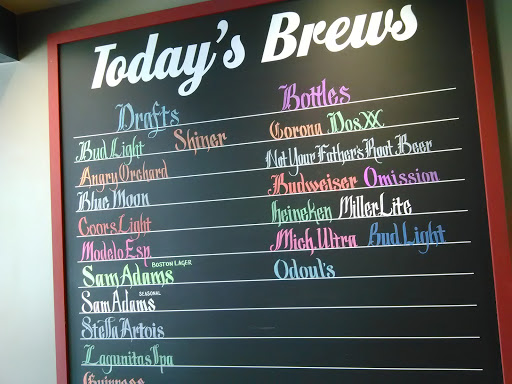 Today's Brews
Drafts
Bud Light Shiner
Angry Orchard
Blue Moon
Coors Light
Modelo Esp
Sam Adams BOSTON LAGER
Sam Adams SEASONAL
Stella Artois
Lagunitas Ipa
Guinness
Bottles
Corona Dos XX
Not Your Father's Root Beer
Budweiser Omission
Heineken Miller Lite
Mich Ultra Bud Light
Odoul's